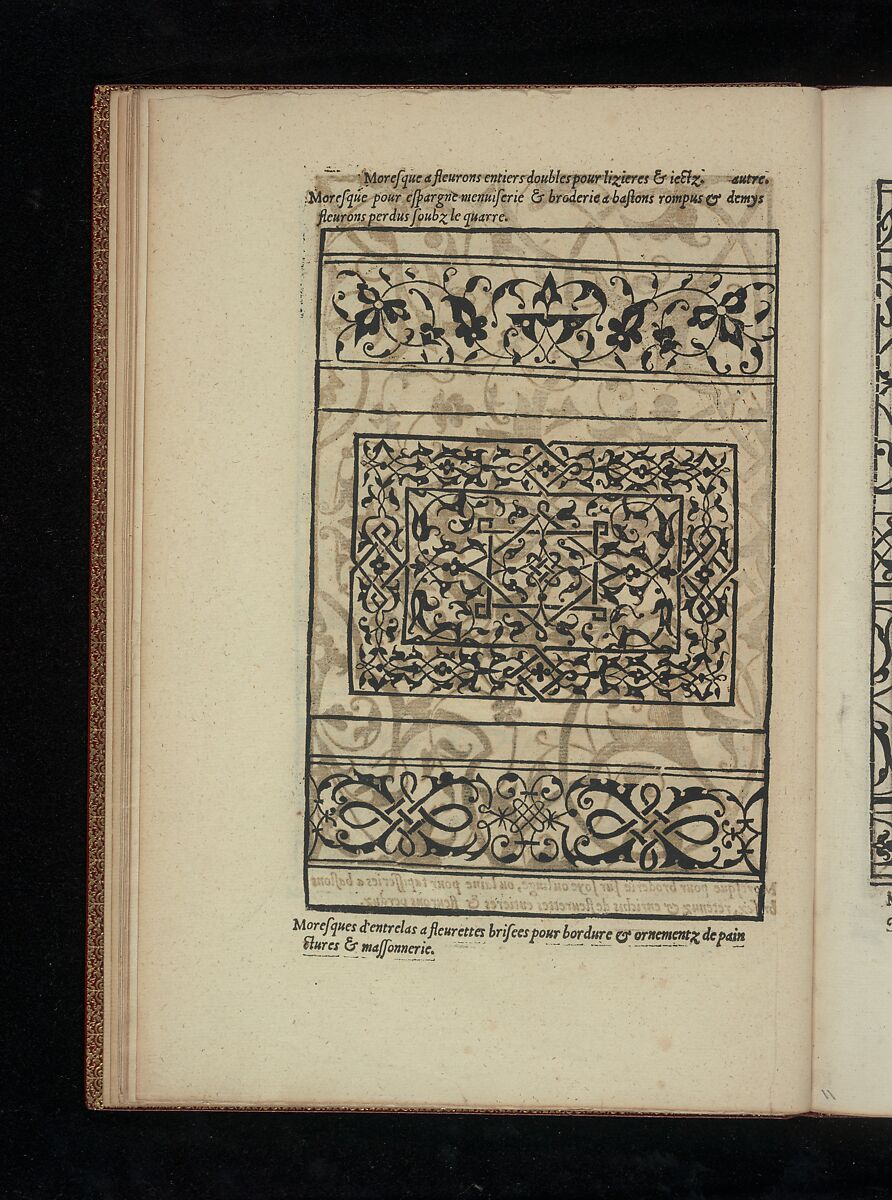 Moresque a fleurons entiers doubles pour lizieres & iectz. autre.
Moresque pour espargne menuiserie & broderie a bastons rompus & demys
fleurons perdus soubz le quarre.
Moresques d'entrelas a fleurettes brisees pour bordure & ornementz de pain
ctures & massonnerie.
11